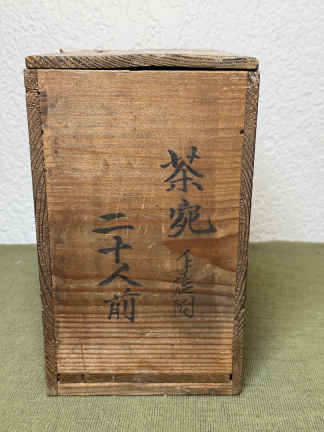 茶宛
二十人前